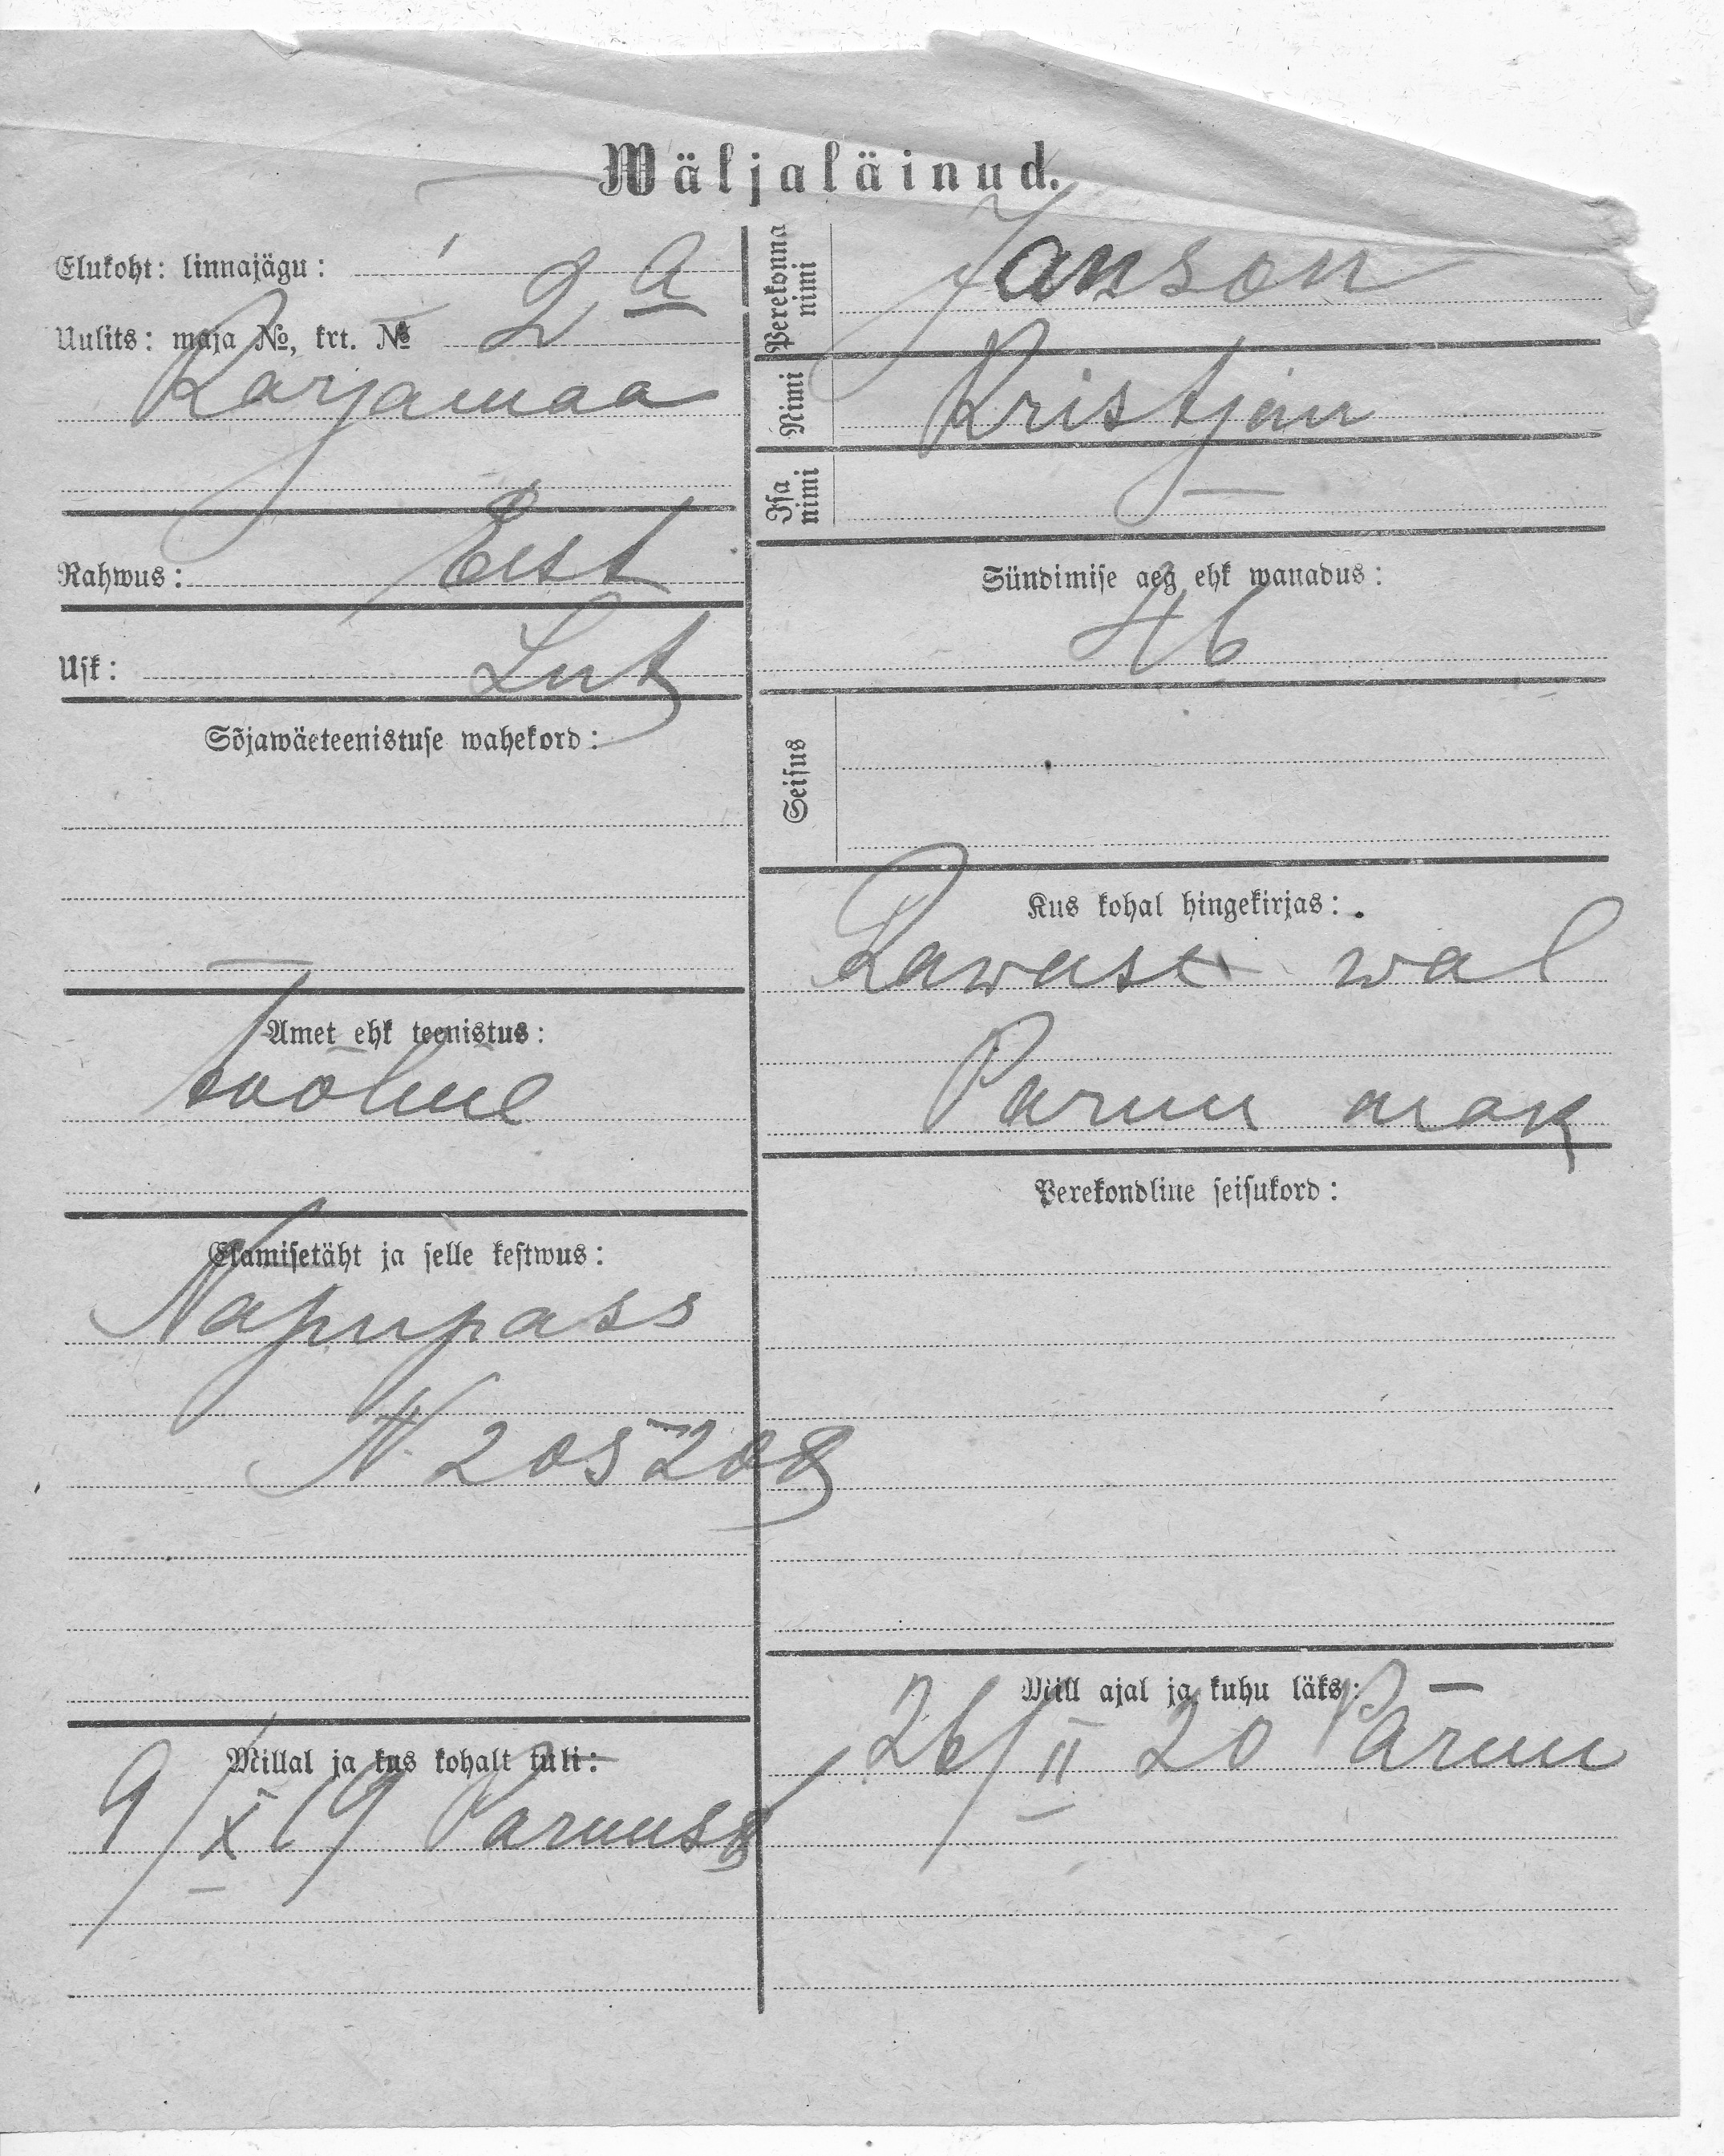 Wäljaläinud.
Elukoht: linnajägu:
Uulits: maja №, krt. № 2 a
Karjamaa
Rahwus: Eest
Usk: Lut
Sõjawäeteenistuse wahekord:
Amet ehk teenistus:
tööline
Elamisetäht ja selle kestwus:
Napupass
N 205208
Millal ja kus kohalt tuli:
9/X 19 Parnust
Perekonna nimi Janson
Nimi Kristjan
Isa nimi —
Sündimise aeg ehk wanadus:
46
Seisus
Kus kohal hingekirjas:
Kawast wal
Parnu mak
Perekondline seisukord:
Mill ajal ja kuhu läks:
26/II 20 Pärnu